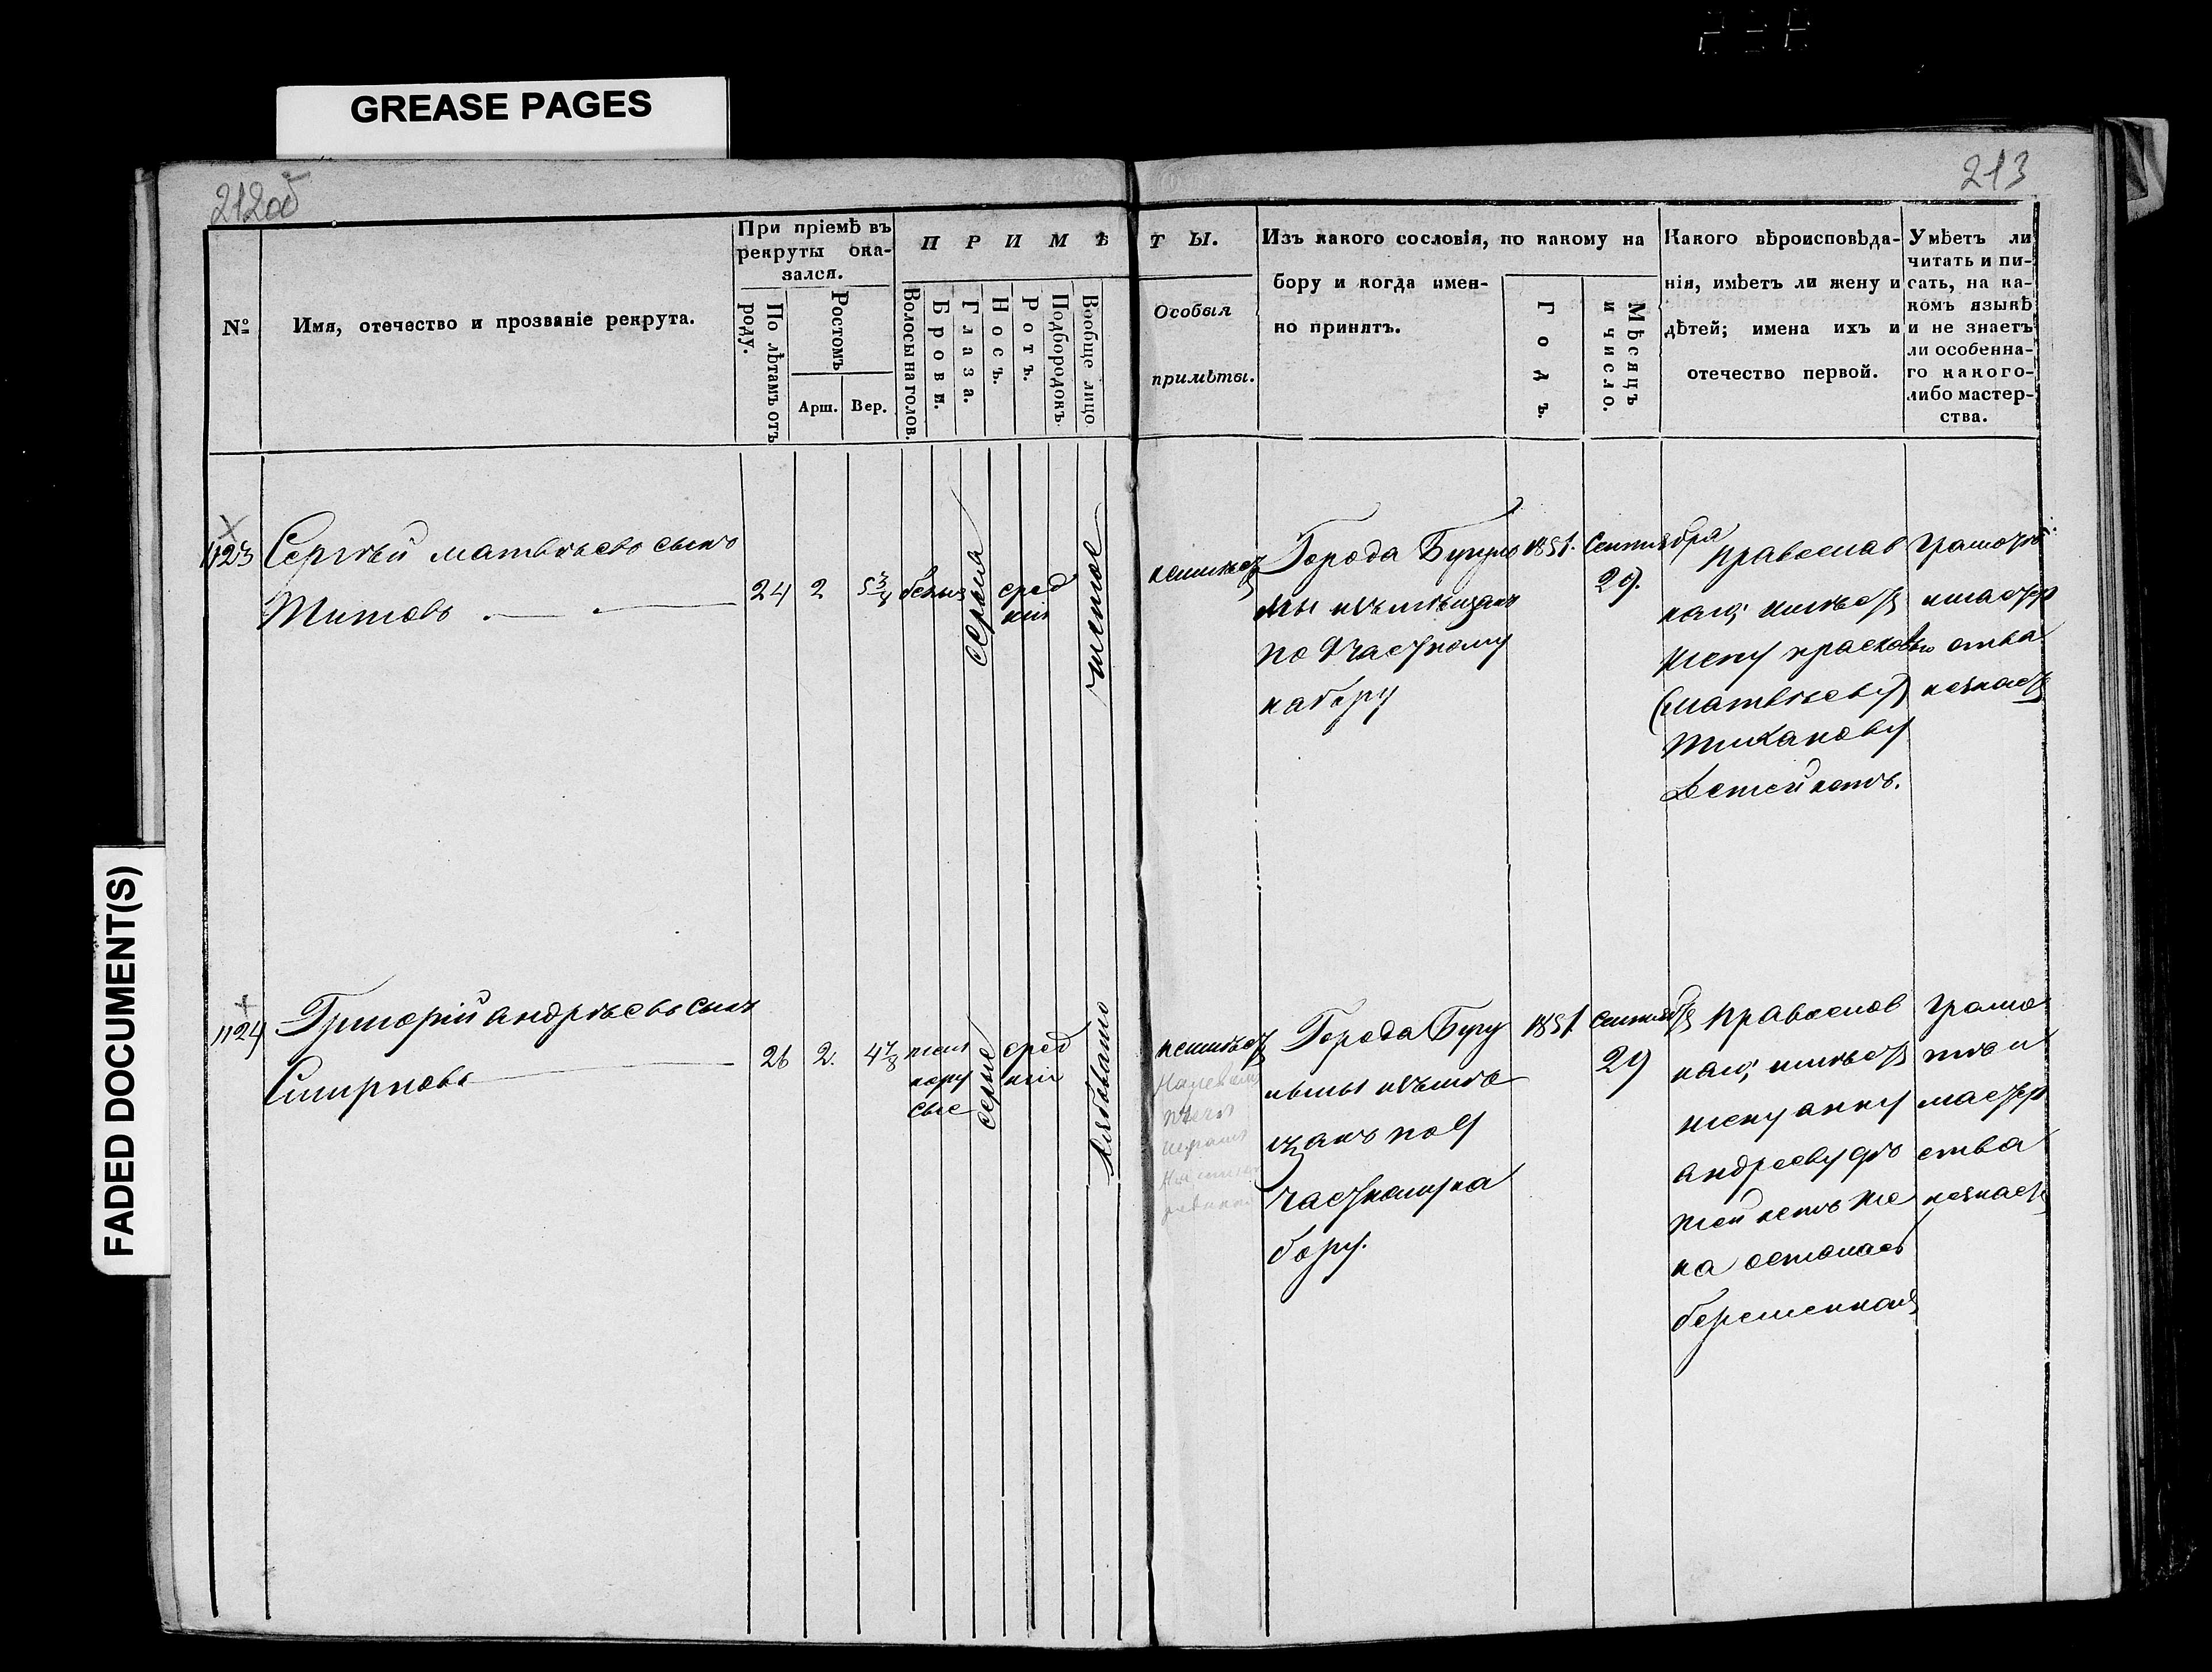 GREASE PAGES
FADED DOCUMENT(S)
212об
213
№
Имя, отечество и прозваніе рекрута.
При пріемѣ въ
рекруты ока-
зался.
По лѣтамъ отъ
роду.
Ростомъ
Арш.
Вер.
ПРИМѢТЫ.
Волосы на голов.
Брови.
Глаза.
Носъ.
Ротъ.
Подбородокъ
Вообще лицо
Особыя
примѣты.
Изъ какого сословія, по какому на
бору и когда имен-
но принятъ.
Годъ.
Мѣсяцъ
и число.
Какого вѣроисповѣда-
нія, имѣетъ ли жену и
дѣтей; имена ихъ и
отечество первой.
Умѣетъ ли
читать и пи-
сать, на ка-
комъ языкѣ
и не знаетъ
ли особенна-
го какого-
либо мастер-
ства.
1123
Сергѣй Матвѣевъ сынъ
Титовъ
24
2
5 3/8
серыя
сред
ніи
чистое
неимѣетъ
Города Бугуль
мы изъ мѣщанъ
по 9 частному
набору
1851.
Сентября
29.
Православ
наго, имѣетъ
жену Прасковью
(Матвѣеву)
детей нетъ.
грамотѣ
и мастер
ства
незнаетъ
1124
Григорій Андрѣевъ сынъ
Смирновъ
26
2.
4 7/8
темно
русые
серые
сред
ніи
Рябовато
неимѣетъ
Города Бугу
льмы изъ мѣ
щанъ по 9
частному на
бору.
1851
Сентября
29
Православ
наго, имѣетъ
жену Анну
Андрееву дѣ
тей нетъ же
на осталась
беременная
грамо
тѣ и
мастер
ства
незнаетъ